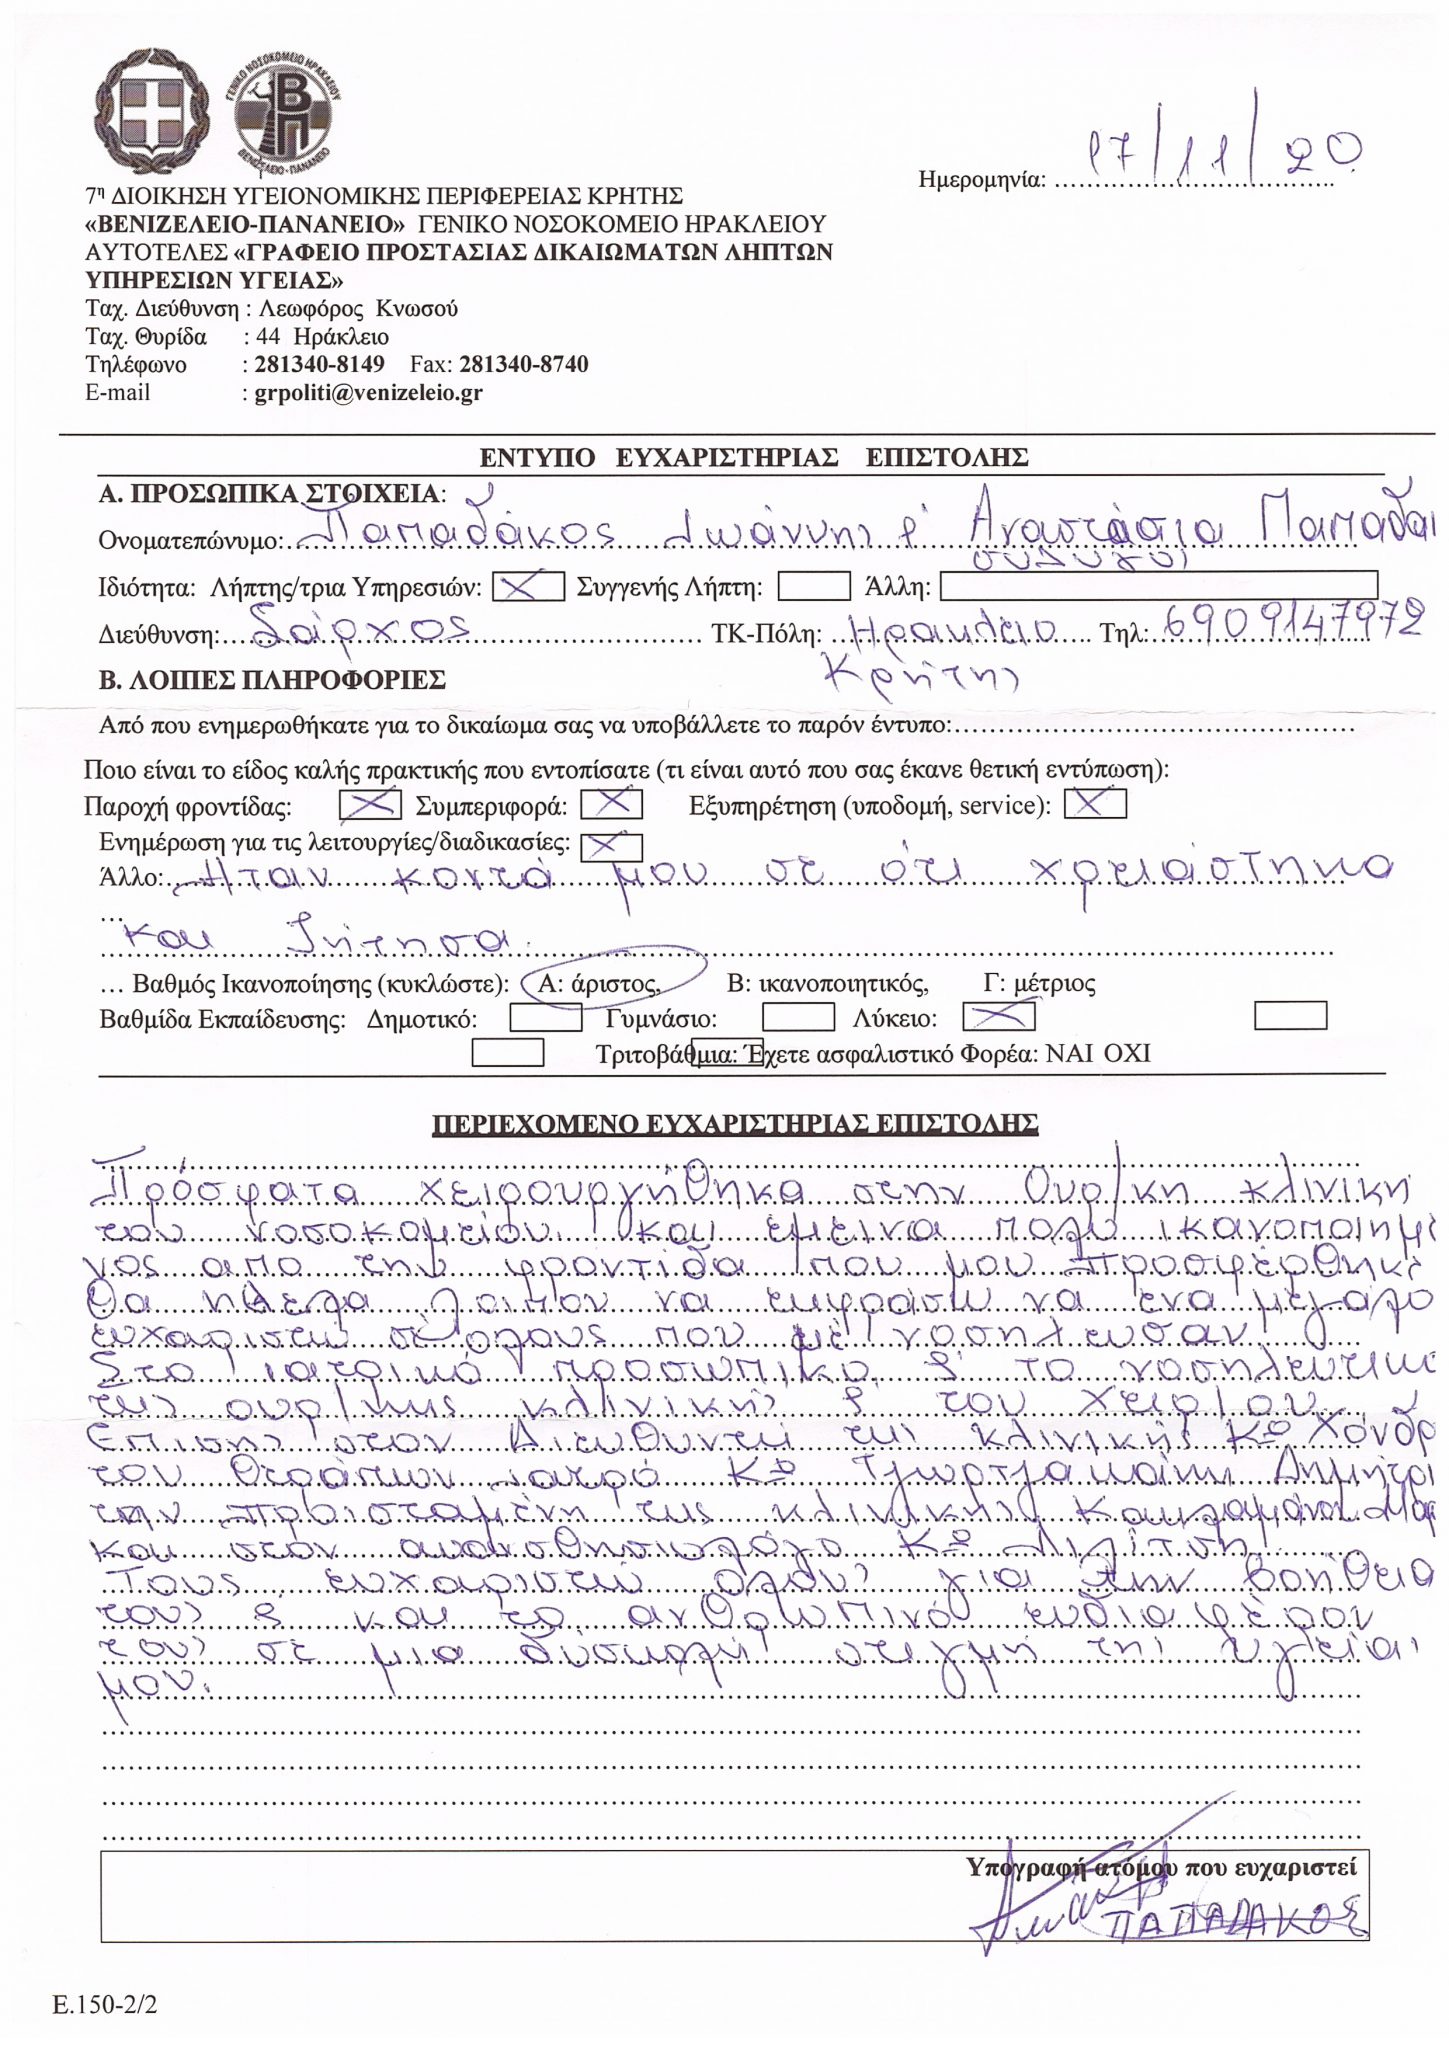 ΓΕΝΙΚΟ ΝΟΣΟΚΟΜΕΙΟ ΗΡΑΚΛΕΙΟΥ
ΒΠ
ΒΕΝΙΖΕΛΕΙΟ - ΠΑΝΑΝΕΙΟ
Ημερομηνία: 17/11/20
7η ΔΙΟΙΚΗΣΗ ΥΓΕΙΟΝΟΜΙΚΗΣ ΠΕΡΙΦΕΡΕΙΑΣ ΚΡΗΤΗΣ
«ΒΕΝΙΖΕΛΕΙΟ-ΠΑΝΑΝΕΙΟ» ΓΕΝΙΚΟ ΝΟΣΟΚΟΜΕΙΟ ΗΡΑΚΛΕΙΟΥ
ΑΥΤΟΤΕΛΕΣ «ΓΡΑΦΕΙΟ ΠΡΟΣΤΑΣΙΑΣ ΔΙΚΑΙΩΜΑΤΩΝ ΛΗΠΤΩΝ
ΥΠΗΡΕΣΙΩΝ ΥΓΕΙΑΣ»
Ταχ. Διεύθυνση : Λεωφόρος Κνωσού
Ταχ. Θυρίδα : 44 Ηράκλειο
Τηλέφωνο : 281340-8149 Fax: 281340-8740
E-mail : grpoliti@venizeleio.gr
ΕΝΤΥΠΟ ΕΥΧΑΡΙΣΤΗΡΙΑΣ ΕΠΙΣΤΟΛΗΣ
Α. ΠΡΟΣΩΠΙΚΑ ΣΤΟΙΧΕΙΑ:
Ονοματεπώνυμο: Παπαδάκος Ιωάννης & Αναστάσια Παπαδα
συζυγοι
Ιδιότητα: Λήπτης/τρια Υπηρεσιών: X Συγγενής Λήπτη: Άλλη:
Διεύθυνση: Σάρχος ΤΚ-Πόλη: Ηρακλειο Τηλ: 6909147972
Κρήτης
Β. ΛΟΙΠΕΣ ΠΛΗΡΟΦΟΡΙΕΣ
Από που ενημερωθήκατε για το δικαίωμα σας να υποβάλλετε το παρόν έντυπο:
Ποιο είναι το είδος καλής πρακτικής που εντοπίσατε (τι είναι αυτό που σας έκανε θετική εντύπωση):
Παροχή φροντίδας: X Συμπεριφορά: X Εξυπηρέτηση (υποδομή, service): X
Ενημέρωση για τις λειτουργίες/διαδικασίες: X
Άλλο: Ηταν κοντά μου σε ότι χρειάστηκα
...
και ζήτησα.
... Βαθμός Ικανοποίησης (κυκλώστε): Α: άριστος, Β: ικανοποιητικός, Γ: μέτριος
Βαθμίδα Εκπαίδευσης: Δημοτικό: Γυμνάσιο: Λύκειο: X
Τριτοβάθμια: Έχετε ασφαλιστικό Φορέα: ΝΑΙ ΟΧΙ
ΠΕΡΙΕΧΟΜΕΝΟ ΕΥΧΑΡΙΣΤΗΡΙΑΣ ΕΠΙΣΤΟΛΗΣ
Πρόσφατα χειρουργήθηκα στην Ουρ/κη κλινική
του νοσοκομείου. και έμεινα πολυ ικανοποιημέ
νος απο την φροντιδα που μου προσφέρθηκε
Θα ηθελα λοιπον να εκφρασω να ενα μεγάλο
ευχαριστω σε ολους που με νοσηλευσαν
Στο ιατρικό προσωπικο & το νοσηλευτικο
της ουρ/κης κλινικής & του Χειρ/ου
Επισης στον Διευθυντη της κλινικής Κο Χόνδρ
τον Θεράπων ιατρό Κο Δημήτρι
την προισταμένη της κλινικης
και στον αναισθησιολόγο Κο
Τους ευχαριστω ολους για την βοήθεια
τους & και το ανθρωπινό ενδιαφέρον
τους σε μια δύσκολη στιγμή της υγείας
μου.
Υπογραφή ατόμου που ευχαριστεί
ΠΑΠΑΔΑΚΟΣ
Ε.150-2/2